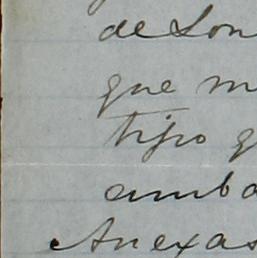 de Lon
que m
tipo q
amba
Anexas